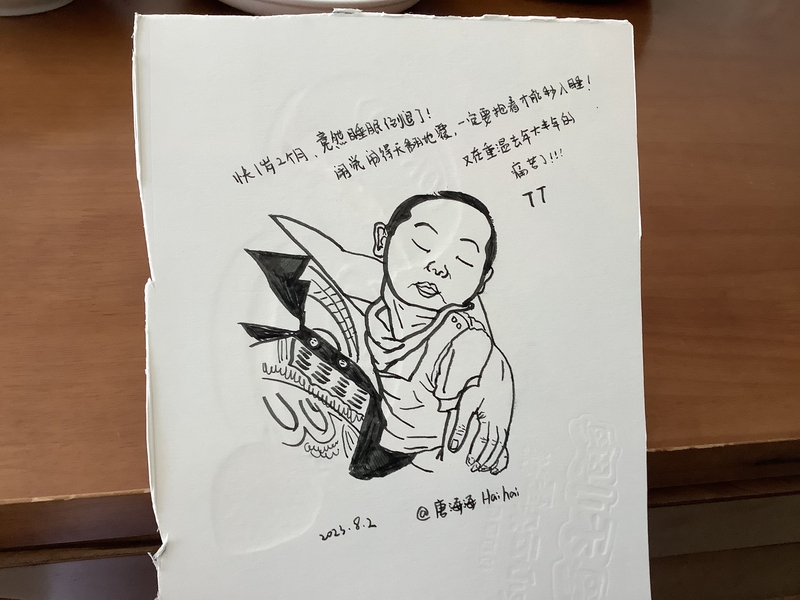 快1岁2个月，竟然睡眠倒退了！
闹觉闹得天翻地覆，一定要抱着才能秒入睡！
又在重温去年大半年的
痛苦了!!!
TT
@唐海海 Haihai
2023.8.2